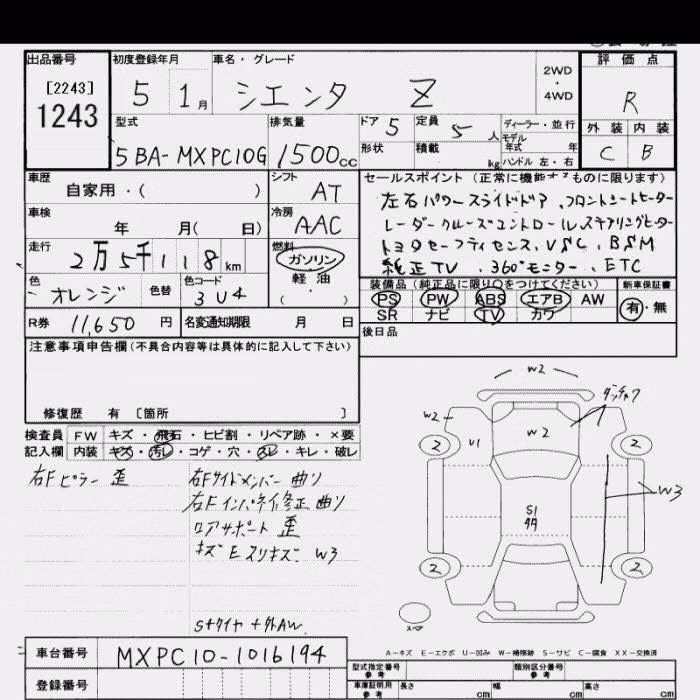 出品番号 初度登録年月 車名・グレード 2WD・4WD 評価点
[2243]
1243
5 1月 シエンタ Z R
型式 排気量 ドア 5 定員 5人 ディーラー・並行 外装 内装
モデル年式 年
5BA-MXPC10G 1500cc 形状 積載 kg ハンドル 左・右 C B
車歴 シフト セールスポイント (正常に機能するものに限ります)
自家用・( ) AT
左右パワースライドドア、フロントシートヒーター
車検 冷房
レーダークルーズコントロール、ステアリングヒーター
年 月( 日) AAC
トヨタセーフティセンス、VSC、BSM
走行 燃料
2万5千118km ガソリン
純正TV、360°モニター、ETC
色 色替 色コード 軽油
オレンジ 3U4 ( )
装備品 (純正品に限り○をつけてください) 新車保証書
PS PW ABS エアB AW 有・無
SR ナビ TV カワ
R券 11,650円 名変通知期限 月 日
後日品
注意事項申告欄(不具合内容等は具体的に記入して下さい)
修復歴 有 〔箇所 〕
検査員記入欄 FW キズ・飛石・ヒビ割・リペア跡・×要
内装 キズ・汚レ・コゲ・穴・スレ・キレ・破レ
右Fピラー 歪 右Fサイドメンバー曲り
右Fインパネイ修正曲り
ロアサポート 歪
キズ E スリキズ W3
Sタイヤ+外AW
W2
W2
ダッチャク
U1
W2
2
2
W3
S1
2
2
スペア
A-キズ E-エクボ U-凹み W-補修跡 S-サビ C-腐食 XX-交換済
車台番号 MXPC10-1016194
型式指定番号 参考 類別区分番号 参考
登録番号 車庫証明用 参考 長さ cm 幅 cm 高さ cm